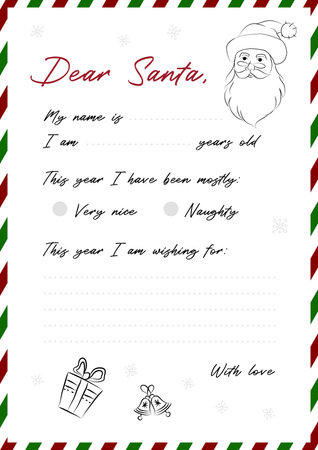 Dear Santa,
My name is
I am years old
This year I have been mostly:
Very nice Naughty
This year I am wishing for:
With love